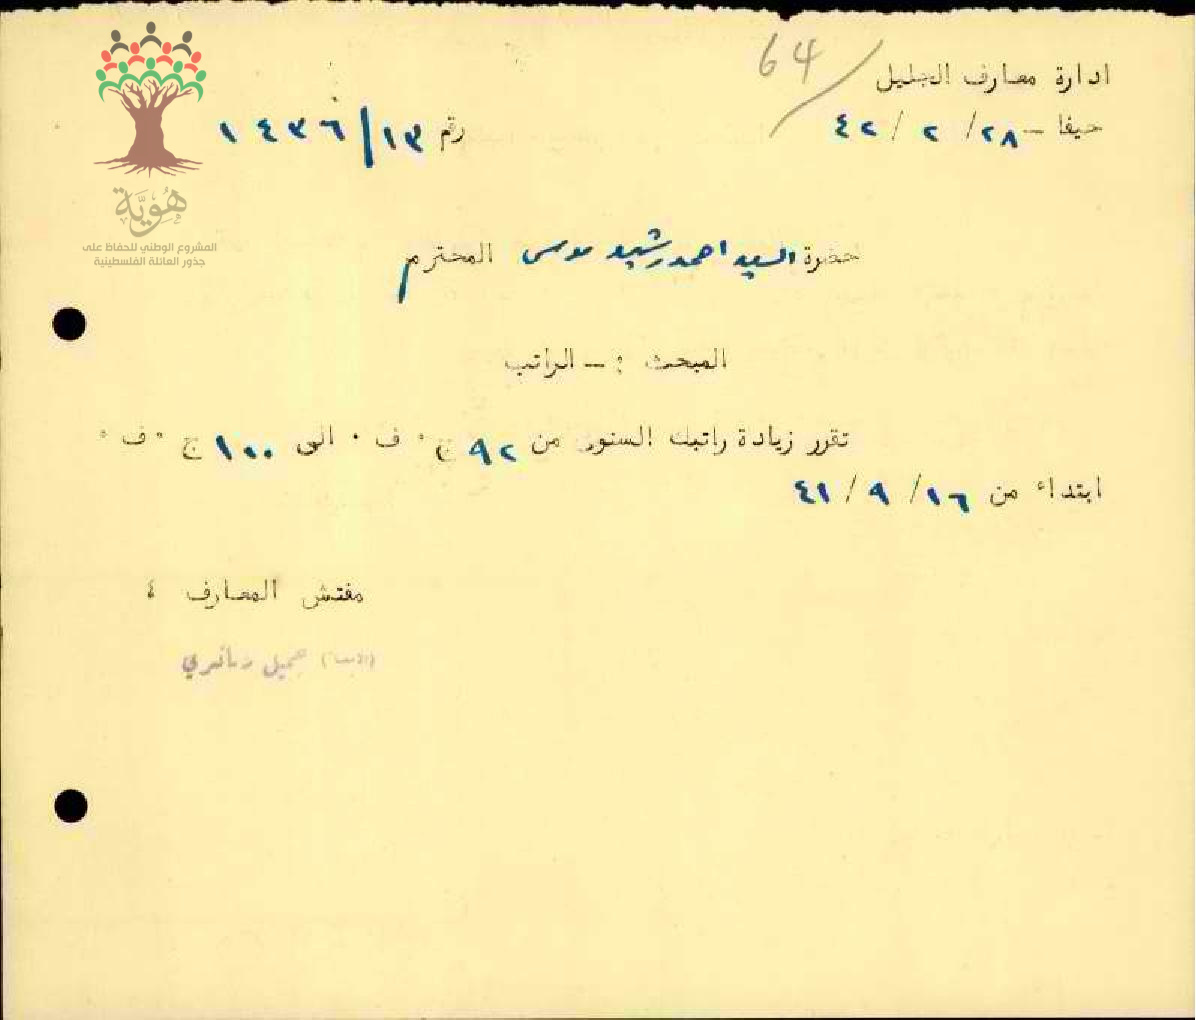 64
ادارة معارف الجليل
حيفا – ٢٨/ ٢ / ٤٢
رقم ١٣/١٤٣٦
هُوِيَّة
المشروع الوطني للحفاظ على
جذور العائلة الفلسطينية
حضرة السيد احمد رشيد موسى المحترم
المبحث : – الراتب
تقرر زيادة راتبك السنوي من ٩٢ ج٠ ف ٠ الى ١٠٠ ج ٠ف ٠
ابتداء من ١٦/ ٩ / ٤١
مفتش المعارف ٤
(الامضاء) جميل